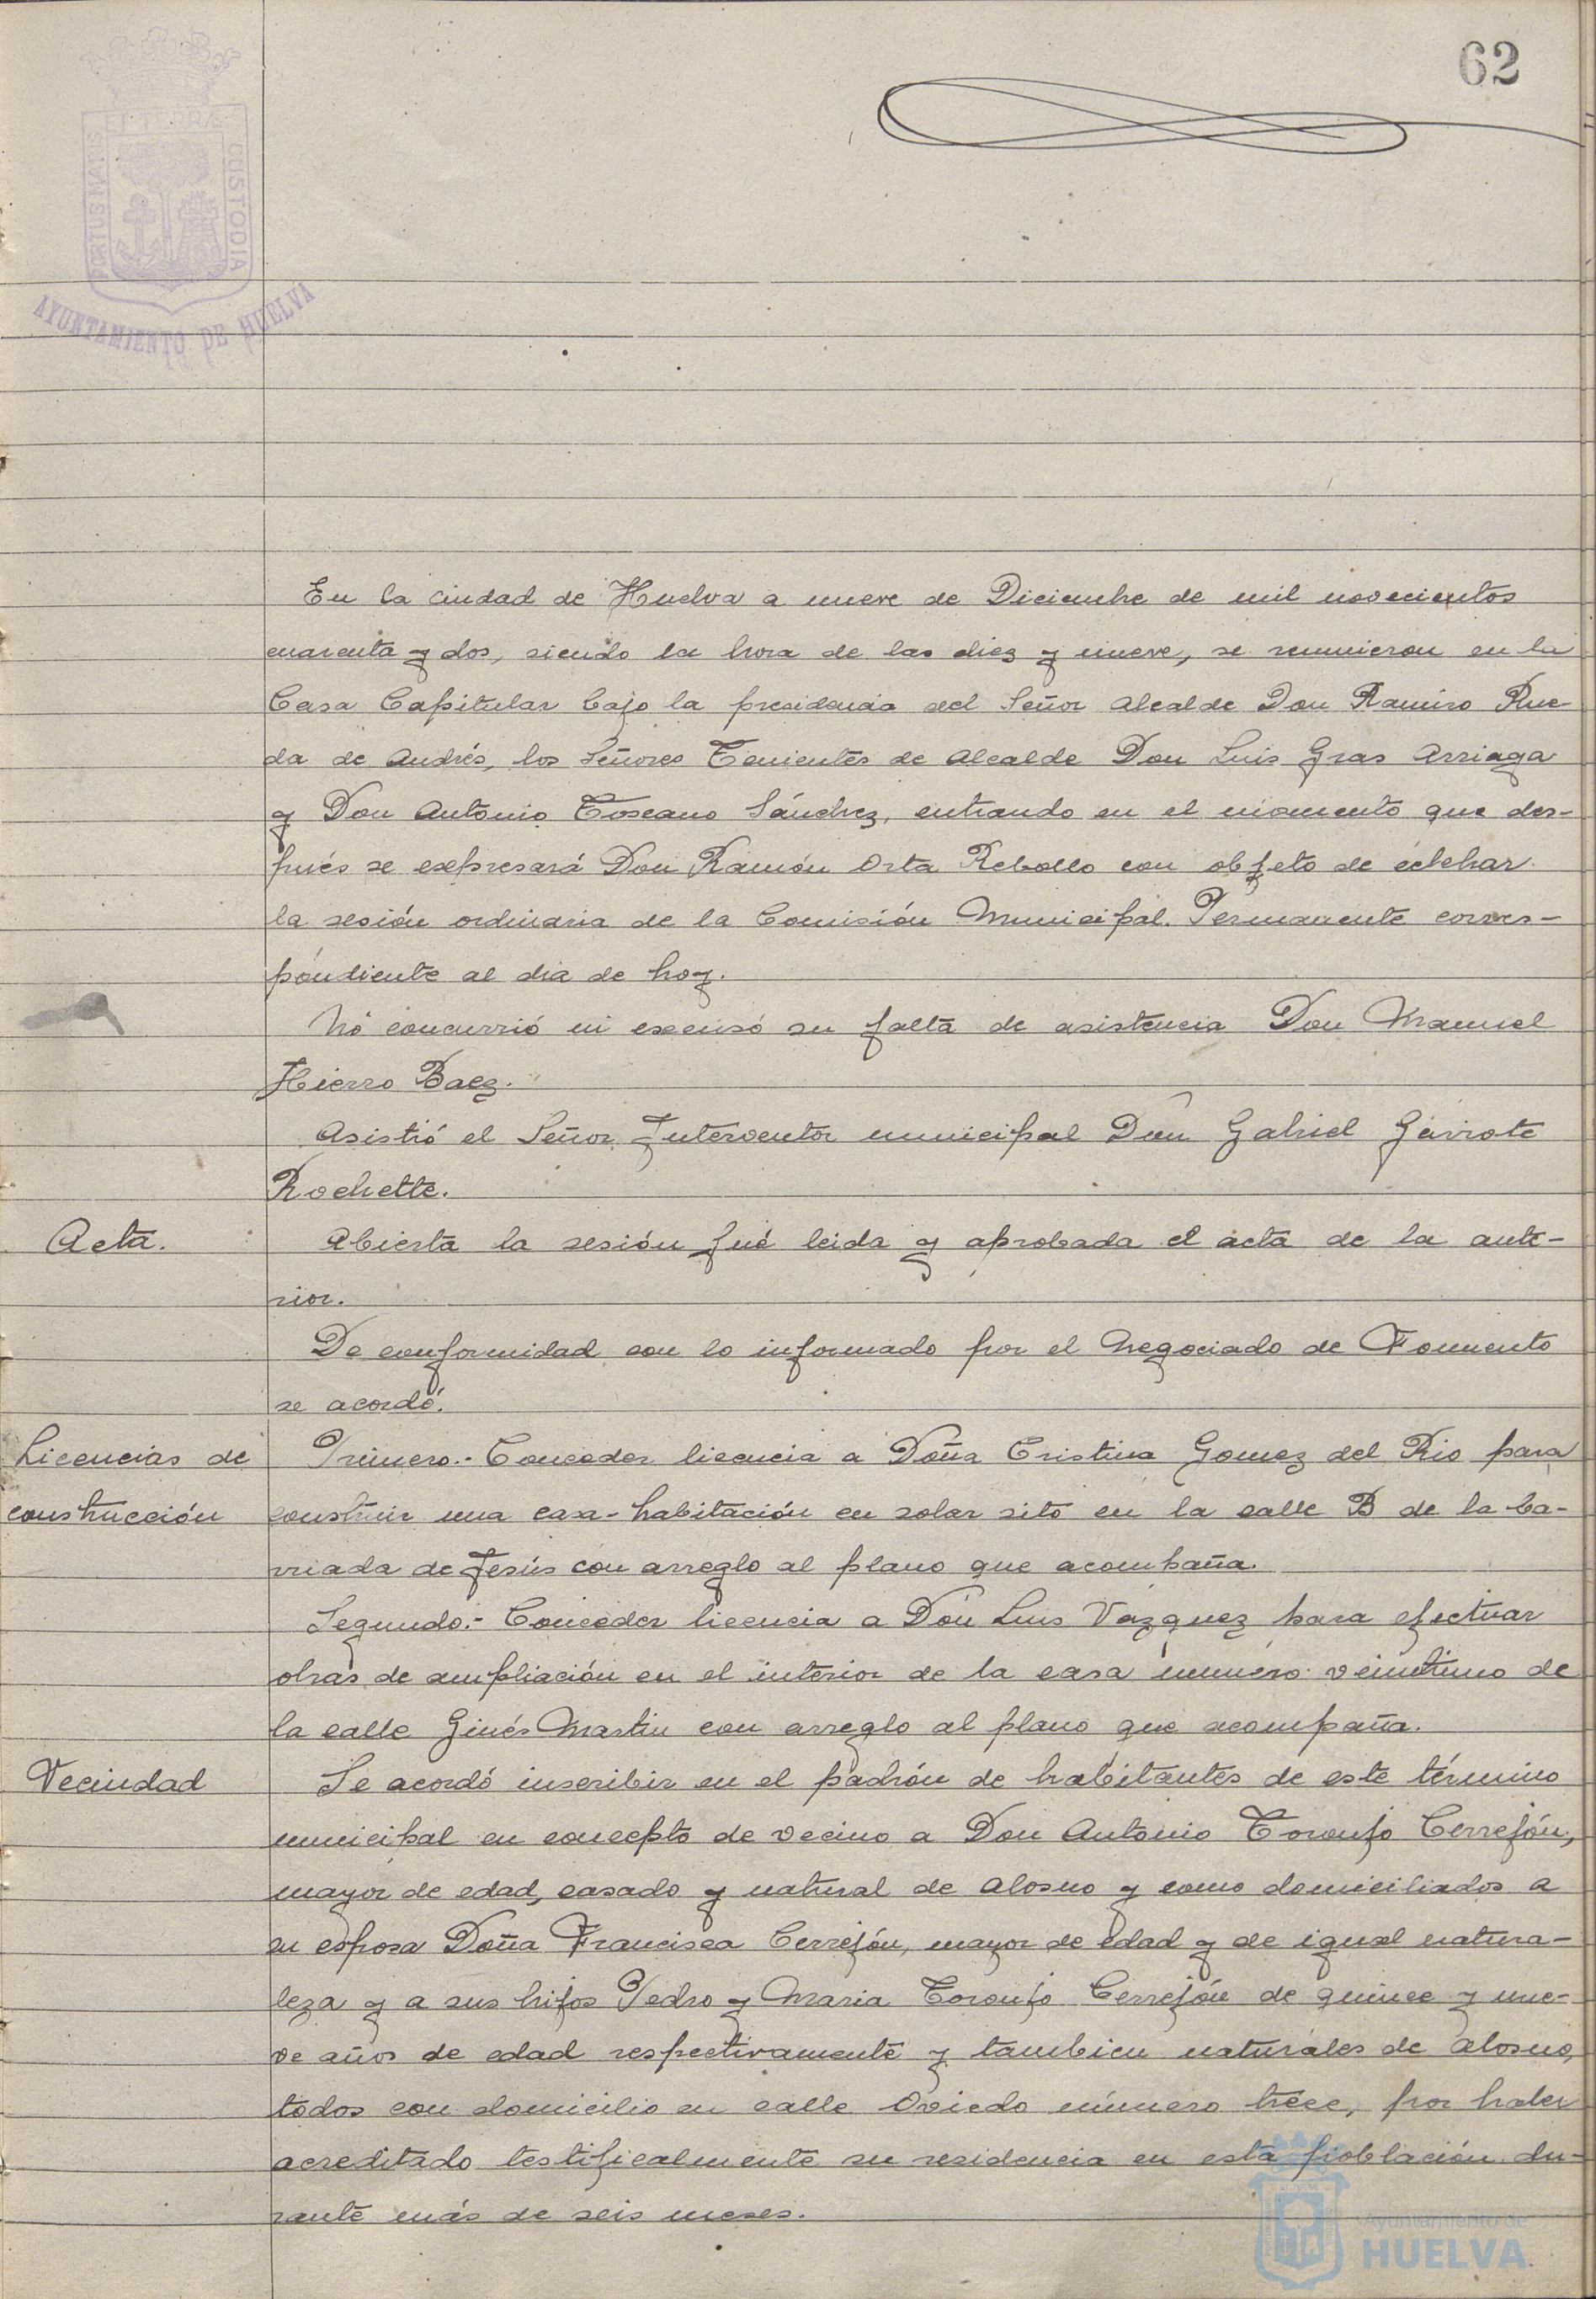 62
PORTUS MARIS
ET TERRE
CUSTODIA
AYUNTAMIENTO DE HUELVA
En la ciudad de Huelva a nueve de Diciembre de mil novecientos
cuarenta y dos, siendo la hora de las diez y nueve, se reunieron en la
Casa Capitular bajo la presidencia del Señor Alcalde Don Ramiro Rue-
da de Andrés, los Señores Tenientes de Alcalde Don Luis Gras Arriaga
y Don Antonio Toscano Sánchez, entrando en el momento que des-
pués se expresará Don Ramón Orta Rebollo con objeto de celebrar
la sesión ordinaria de la Comisión Municipal Permanente corres-
pondiente al dia de hoy.
No concurrió ni excusó su falta de asistencia Don Manuel
Hierro Baez.
Asistió el Señor Interventor municipal Don Gabriel Garrote
Rochette.
Acta.
Abierta la sesión fué leida y aprobada el acta de la ante-
rior.
De conformidad con lo informado por el Negociado de Fomento
se acordó:
Licencias de
construcción
Primero.- Conceder licencia a Doña Cristina Gomez del Rio para
construir una casa-habitación en solar sito en la calle B de la ba-
rriada de Jesús con arreglo al plano que acompaña.
Segundo.- Conceder licencia a Don Luis Vázquez para efectuar
obras de ampliación en el interior de la casa número veintiuno de
la calle Ginés Martin con arreglo al plano que acompaña.
Vecindad
Se acordó inscribir en el padrón de habitantes de este término
municipal en concepto de vecino a Don Antonio Toronjo Cerrejón,
mayor de edad, casado y natural de Alosno y como domiciliados a
su esposa Doña Francisca Cerrejón, mayor de edad y de igual natura-
leza y a sus hijos Pedro y Maria Toronjo Cerrejón de quince y nue-
ve años de edad respectivamente y tambien naturales de Alosno,
todos con domicilio en calle Oviedo número trece, por haber
acreditado testificalmente su residencia en esta población du-
rante más de seis meses.
Ayuntamiento de
HUELVA